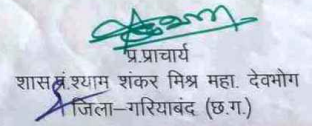 प्र.प्राचार्य
शास.पं.श्याम शंकर मिश्र महा. देवभोग
जिला–गरियाबंद (छ.ग.)